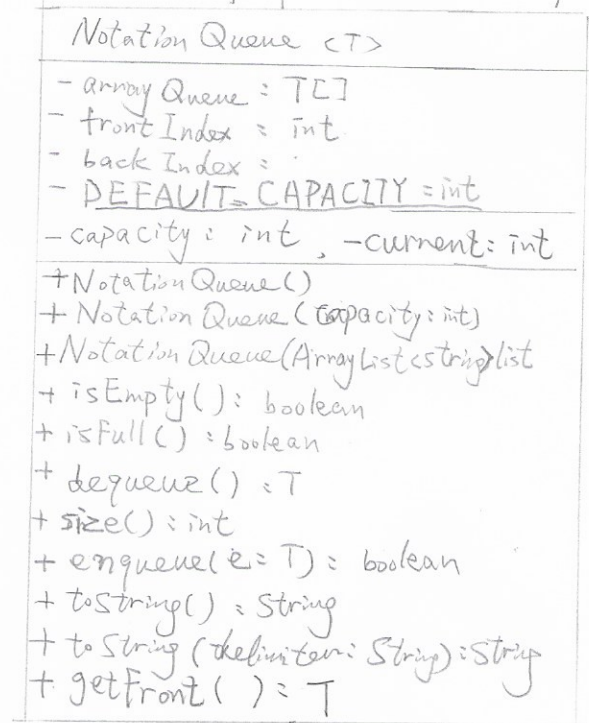 Notation Queue <T>
- array Queue : T[]
- front Index : int
- back Index :
- DEFAULT_CAPACITY : int
- capacity : int , - current : int
+ Notation Queue ()
+ Notation Queue (capacity : int)
+ Notation Queue (ArrayList<string> list
+ isEmpty() : boolean
+ isFull() : boolean
+ dequeue() : T
+ size() : int
+ enqueue(e : T) : boolean
+ toString() : String
+ toString (delimiter : String) : String
+ getFront( ) : T